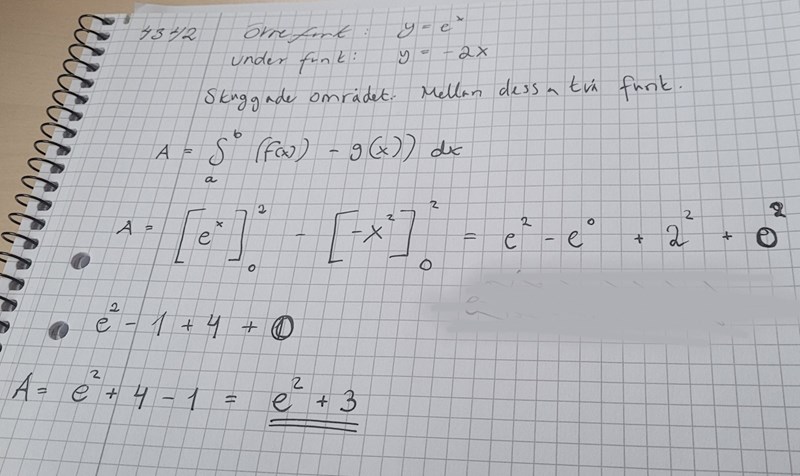 4342 Övre funt: y = e^x
under funt: y = -2x
Skuggade området. Mellan dessa två funt.
A = ∫_a^b (f(x)) - g(x)) dx
A = [e^x]_0^2 - [-x^2]_0^2 = e^2 - e^0 + 2^2 + 0^2
e^2 - 1 + 4 + 0
A = e^2 + 4 - 1 = e^2 + 3